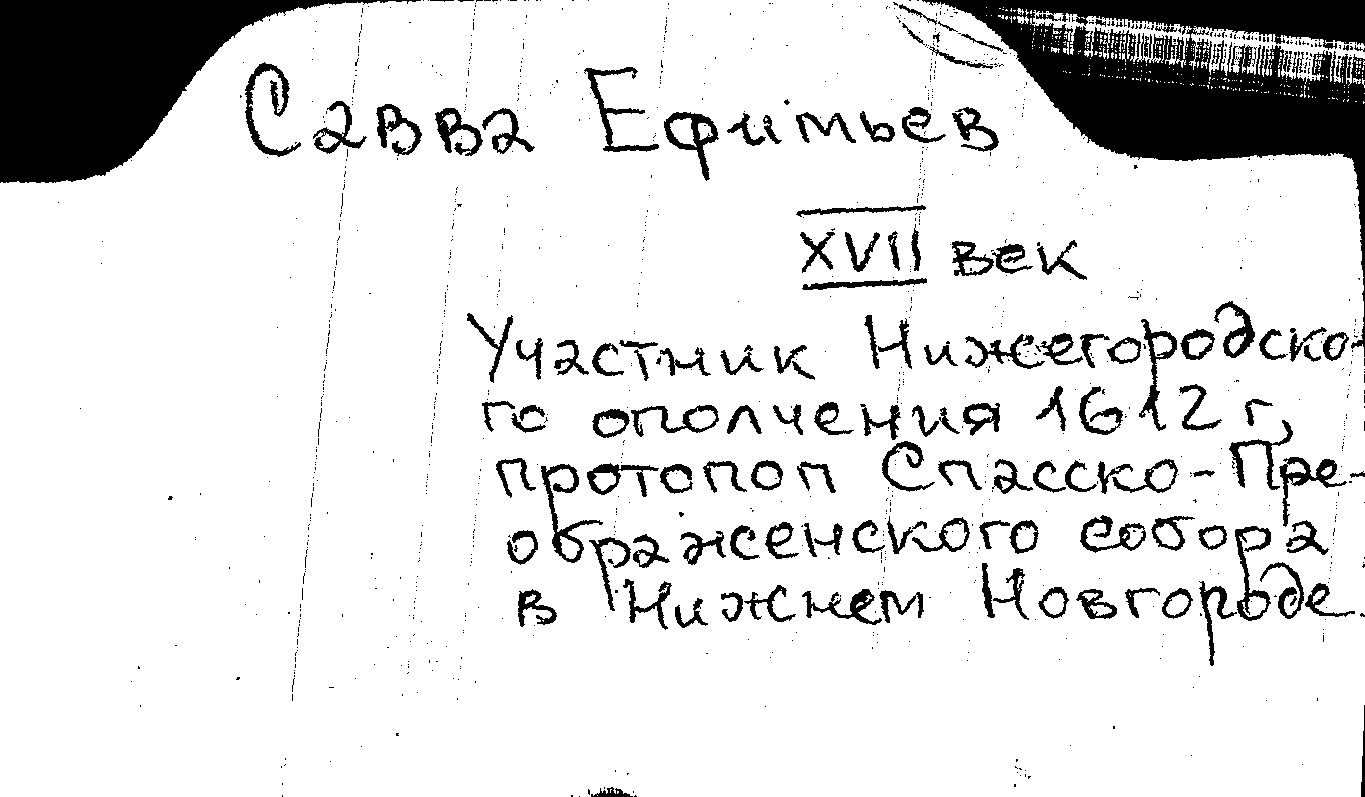 Савва Ефимьев
XVII век
Участник Нижегородско-
го ополчения 1612 г,
протопоп Спасско-Пре-
ображенского собора
в Нижнем Новгороде.